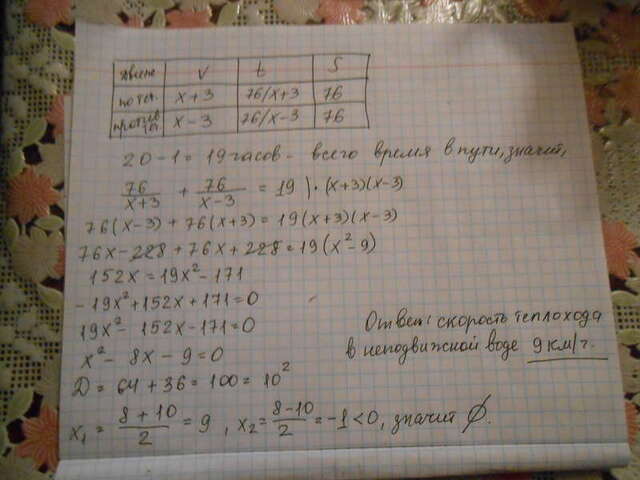 движе V t S
по теч. x+3 76/x+3 76
против теч. x-3 76/x-3 76
20-1=19 часов - всего время в пути, значит,
76/x+3 + 76/x-3 = 19 |·(x+3)(x-3)
76(x-3)+76(x+3)=19(x+3)(x-3)
76x-228+76x+228=19(x²-9)
152x=19x²-171
-19x²+152x+171=0
19x²-152x-171=0
x²-8x-9=0
D=64+36=100=10²
x₁=8+10/2=9, x₂=8-10/2=-1<0, значит ∅.
Ответ: скорость теплохода
в неподвижной воде 9 км/ч.